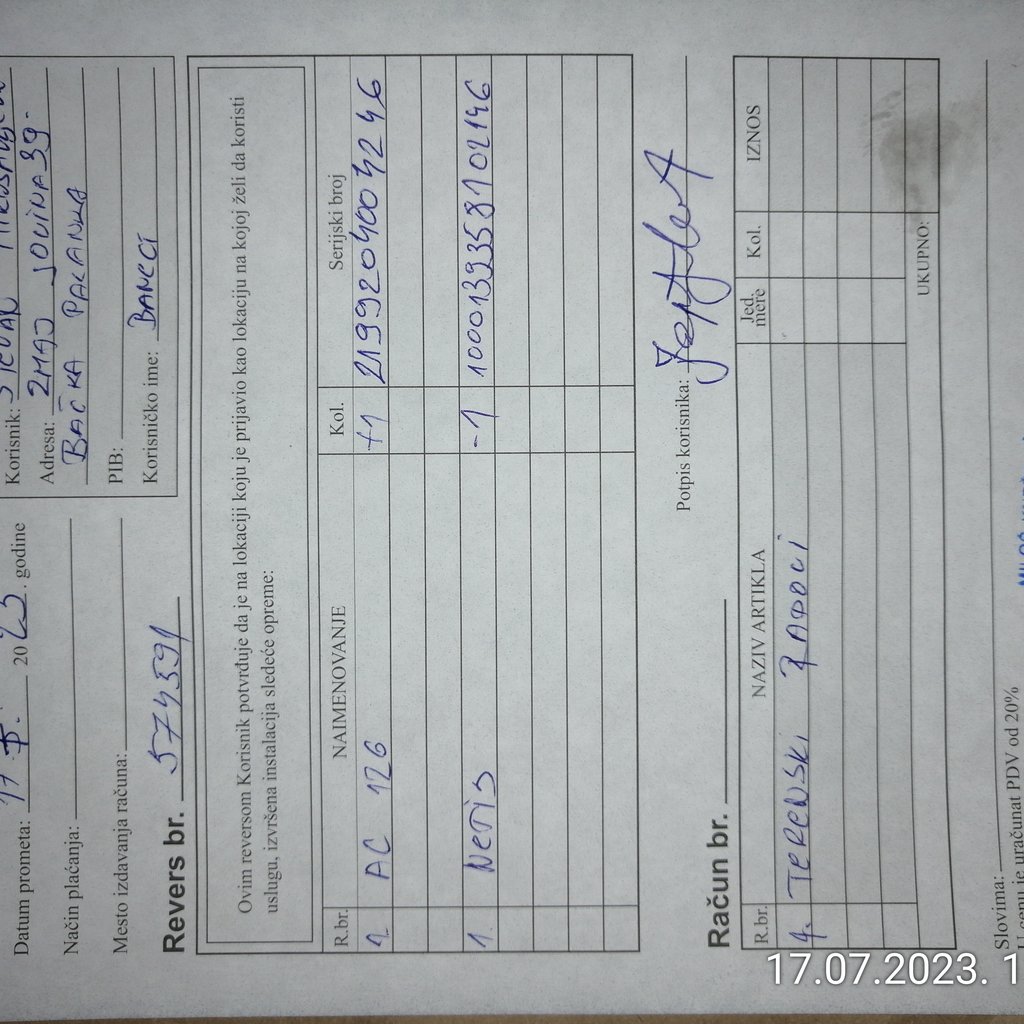 Datum prometa: 17 7. 2023. godine
Način plaćanja:
Mesto izdavanja računa:
Korisnik: STEVAN
Adresa: ZMAJ JOVINA 39.
BAČKA PALANKA
PIB:
Korisničko ime: BANECI
Revers br. 574591
Ovim reversom Korisnik potvrđuje da je na lokaciji koju je prijavio kao lokaciju na kojoj želi da koristi
uslugu, izvršena instalacija sledeće opreme:
R.br. NAIMENOVANJE Kol. Serijski broj
1. AC 126 +1 2199204004246
1. NETIS -1 1000139358102146
Potpis korisnika:
Račun br.
R.br. NAZIV ARTIKLA Jed. mere Kol. IZNOS
1. TERENSKI RADOVI
UKUPNO:
Slovima:
U cenu je uračunat PDV od 20%
17.07.2023. 1